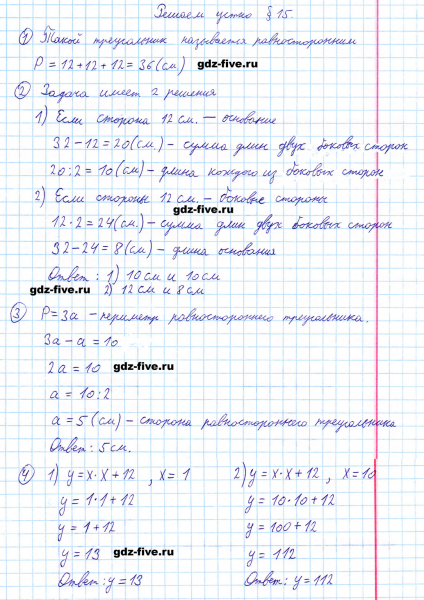 Решаем устно § 15.
① Такой треугольник называется равносторонним
P = 12 + 12 + 12 = 36 (см) gdz-five.ru
② Задача имеет 2 решения
1) Если сторона 12 см. — основание
32 - 12 = 20 (см) - сумма длин двух боковых сторон
20 : 2 = 10 (см) - длина каждого из боковых сторон
gdz-five.ru
2) Если стороны 12 см. - боковые стороны
gdz-five.ru
12 · 2 = 24 (см.) - сумма длин двух боковых сторон
32 - 24 = 8 (см) - длина основания
Ответ: 1) 10 см и 10 см
gdz-five.ru 2) 12 см и 8 см
③ P = 3a - периметр равностороннего треугольника.
3a - a = 10
2a = 10 gdz-five.ru
a = 10 : 2
a = 5 (см) - сторона равностороннего треугольника
Ответ: 5 см. gdz-five.ru
④ 1) y = x · x + 12 , x = 1 2) y = x · x + 12 , x = 10
y = 1 · 1 + 12 gdz-five.ru y = 10 · 10 + 12
y = 1 + 12 y = 100 + 12
y = 13 gdz-five.ru y = 112
Ответ: y = 13 Ответ: y = 112